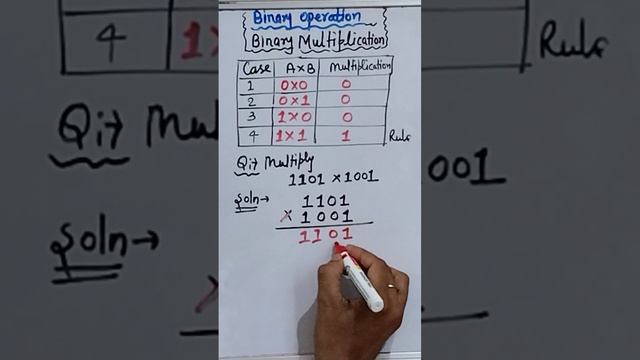 Binary operation
Binary Multiplication
Case A×B Multiplication
1 0×0 0
2 0×1 0
3 1×0 0
4 1×1 1 Rule
Q:1→ Multiply
1101 × 1001
Soln→ 1101
× 1001
1101